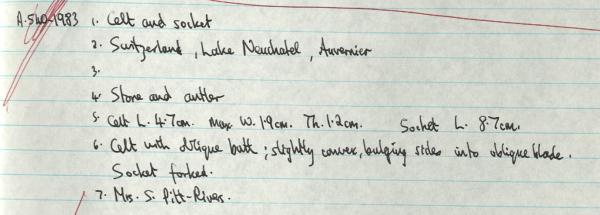 A.540-1983 1. Celt and socket
2. Switzerland, Lake Neuchatel, Auvernier
3.
4. Stone and antler
5. Celt L. 4.7cm. Max W. 1.9cm. Th. 1.2cm. Socket L. 8.7cm.
6. Celt with oblique butt; slightly convex, bulging sides into oblique blade.
Socket forked.
7. Mrs. S. Pitt-Rivers.